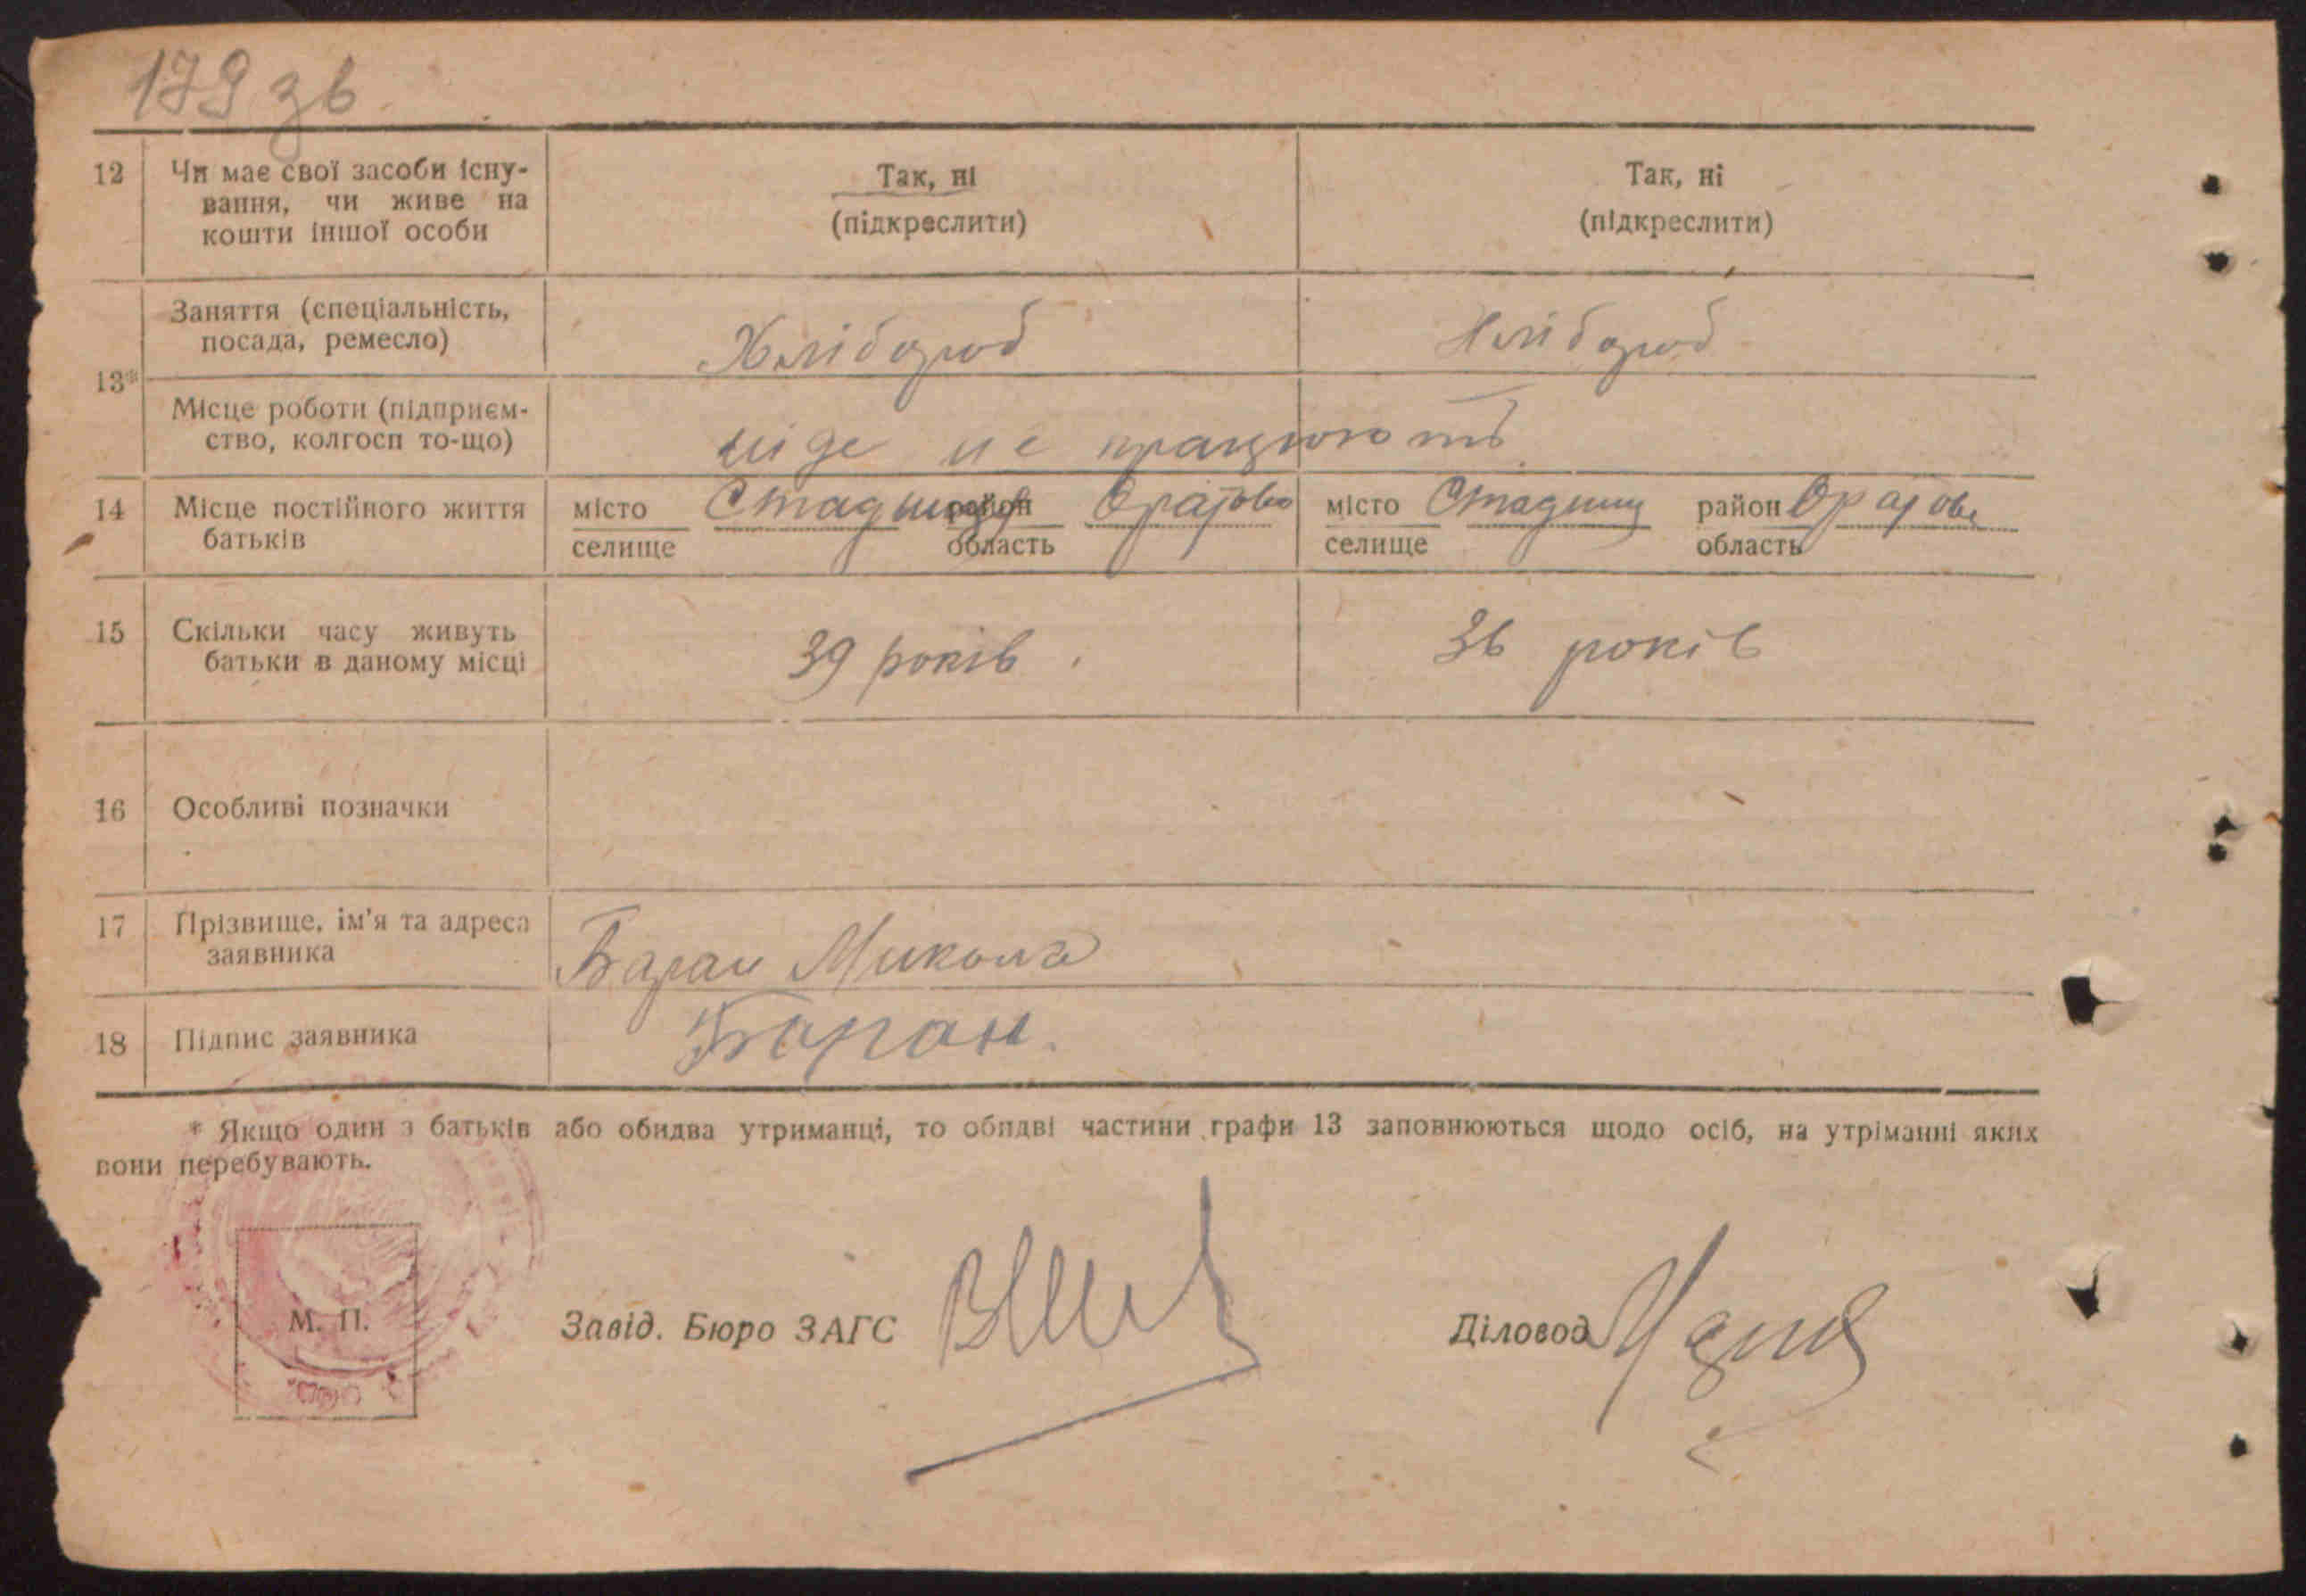 179 зв
12 Чи має свої засоби існу- Так, ні Так, ні
вання, чи живе на (підкреслити) (підкреслити)
кошти іншої особи
Заняття (спеціальність,
посада, ремесло) Хлібороб Хлібороб
13*
Місце роботи (підприєм-
ство, колгосп то-що) ніде не працюють
14 Місце постійного життя місто район місто район
батьків селище область селище область
15 Скільки часу живуть 39 років 36 років
батьки в даному місці
16 Особливі позначки
17 Прізвище, ім'я та адреса
заявника Баран Микола
18 Підпис заявника Баран.
* Якщо один з батьків або обидва утриманці, то обидві частини графи 13 заповнюються щодо осіб, на утріманні яких
вони перебувають.
М. П. Завід. Бюро ЗАГС Діловод